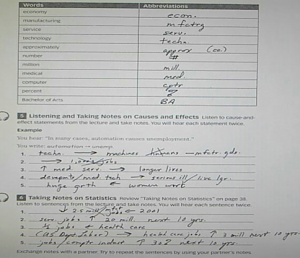 Words Abbreviations
economy econ.
manufacturing mfatrg
service serv.
technology techn.
approximately approx (ca.)
number #
million mill
medical med.
computer cptr
percent %
Bachelor of Arts BA
5 Listening and Taking Notes on Causes and Effects Listen to cause-and-
effect statements from the lecture and take notes. You will hear each statement twice.
Example
You hear: "In many cases, automation causes unemployment."
You write: automation → unemp.
1. techn. → machines humans — mfctr. gds.
2. → 1,000's jobs
3. ↑ med serv → longer lives
4. / med tech →
5. huge groth ← women work
6 Taking Notes on Statistics Review "Taking Notes on Statistics" on page 38.
Listen to sentences from the lecture and take notes. You will hear each sentence twice.
1. jobs ← 2001
2. serv jobs ↑ 20 mill next 10 yrs.
3. ½ jobs ← health care
4. health care jobs ↑ 3 mill next 10 yrs
5. jobs/comptr indust ↑ 30% next 10 yrs.
Exchange notes with a partner. Try to repeat the sentences by using your partner's notes.